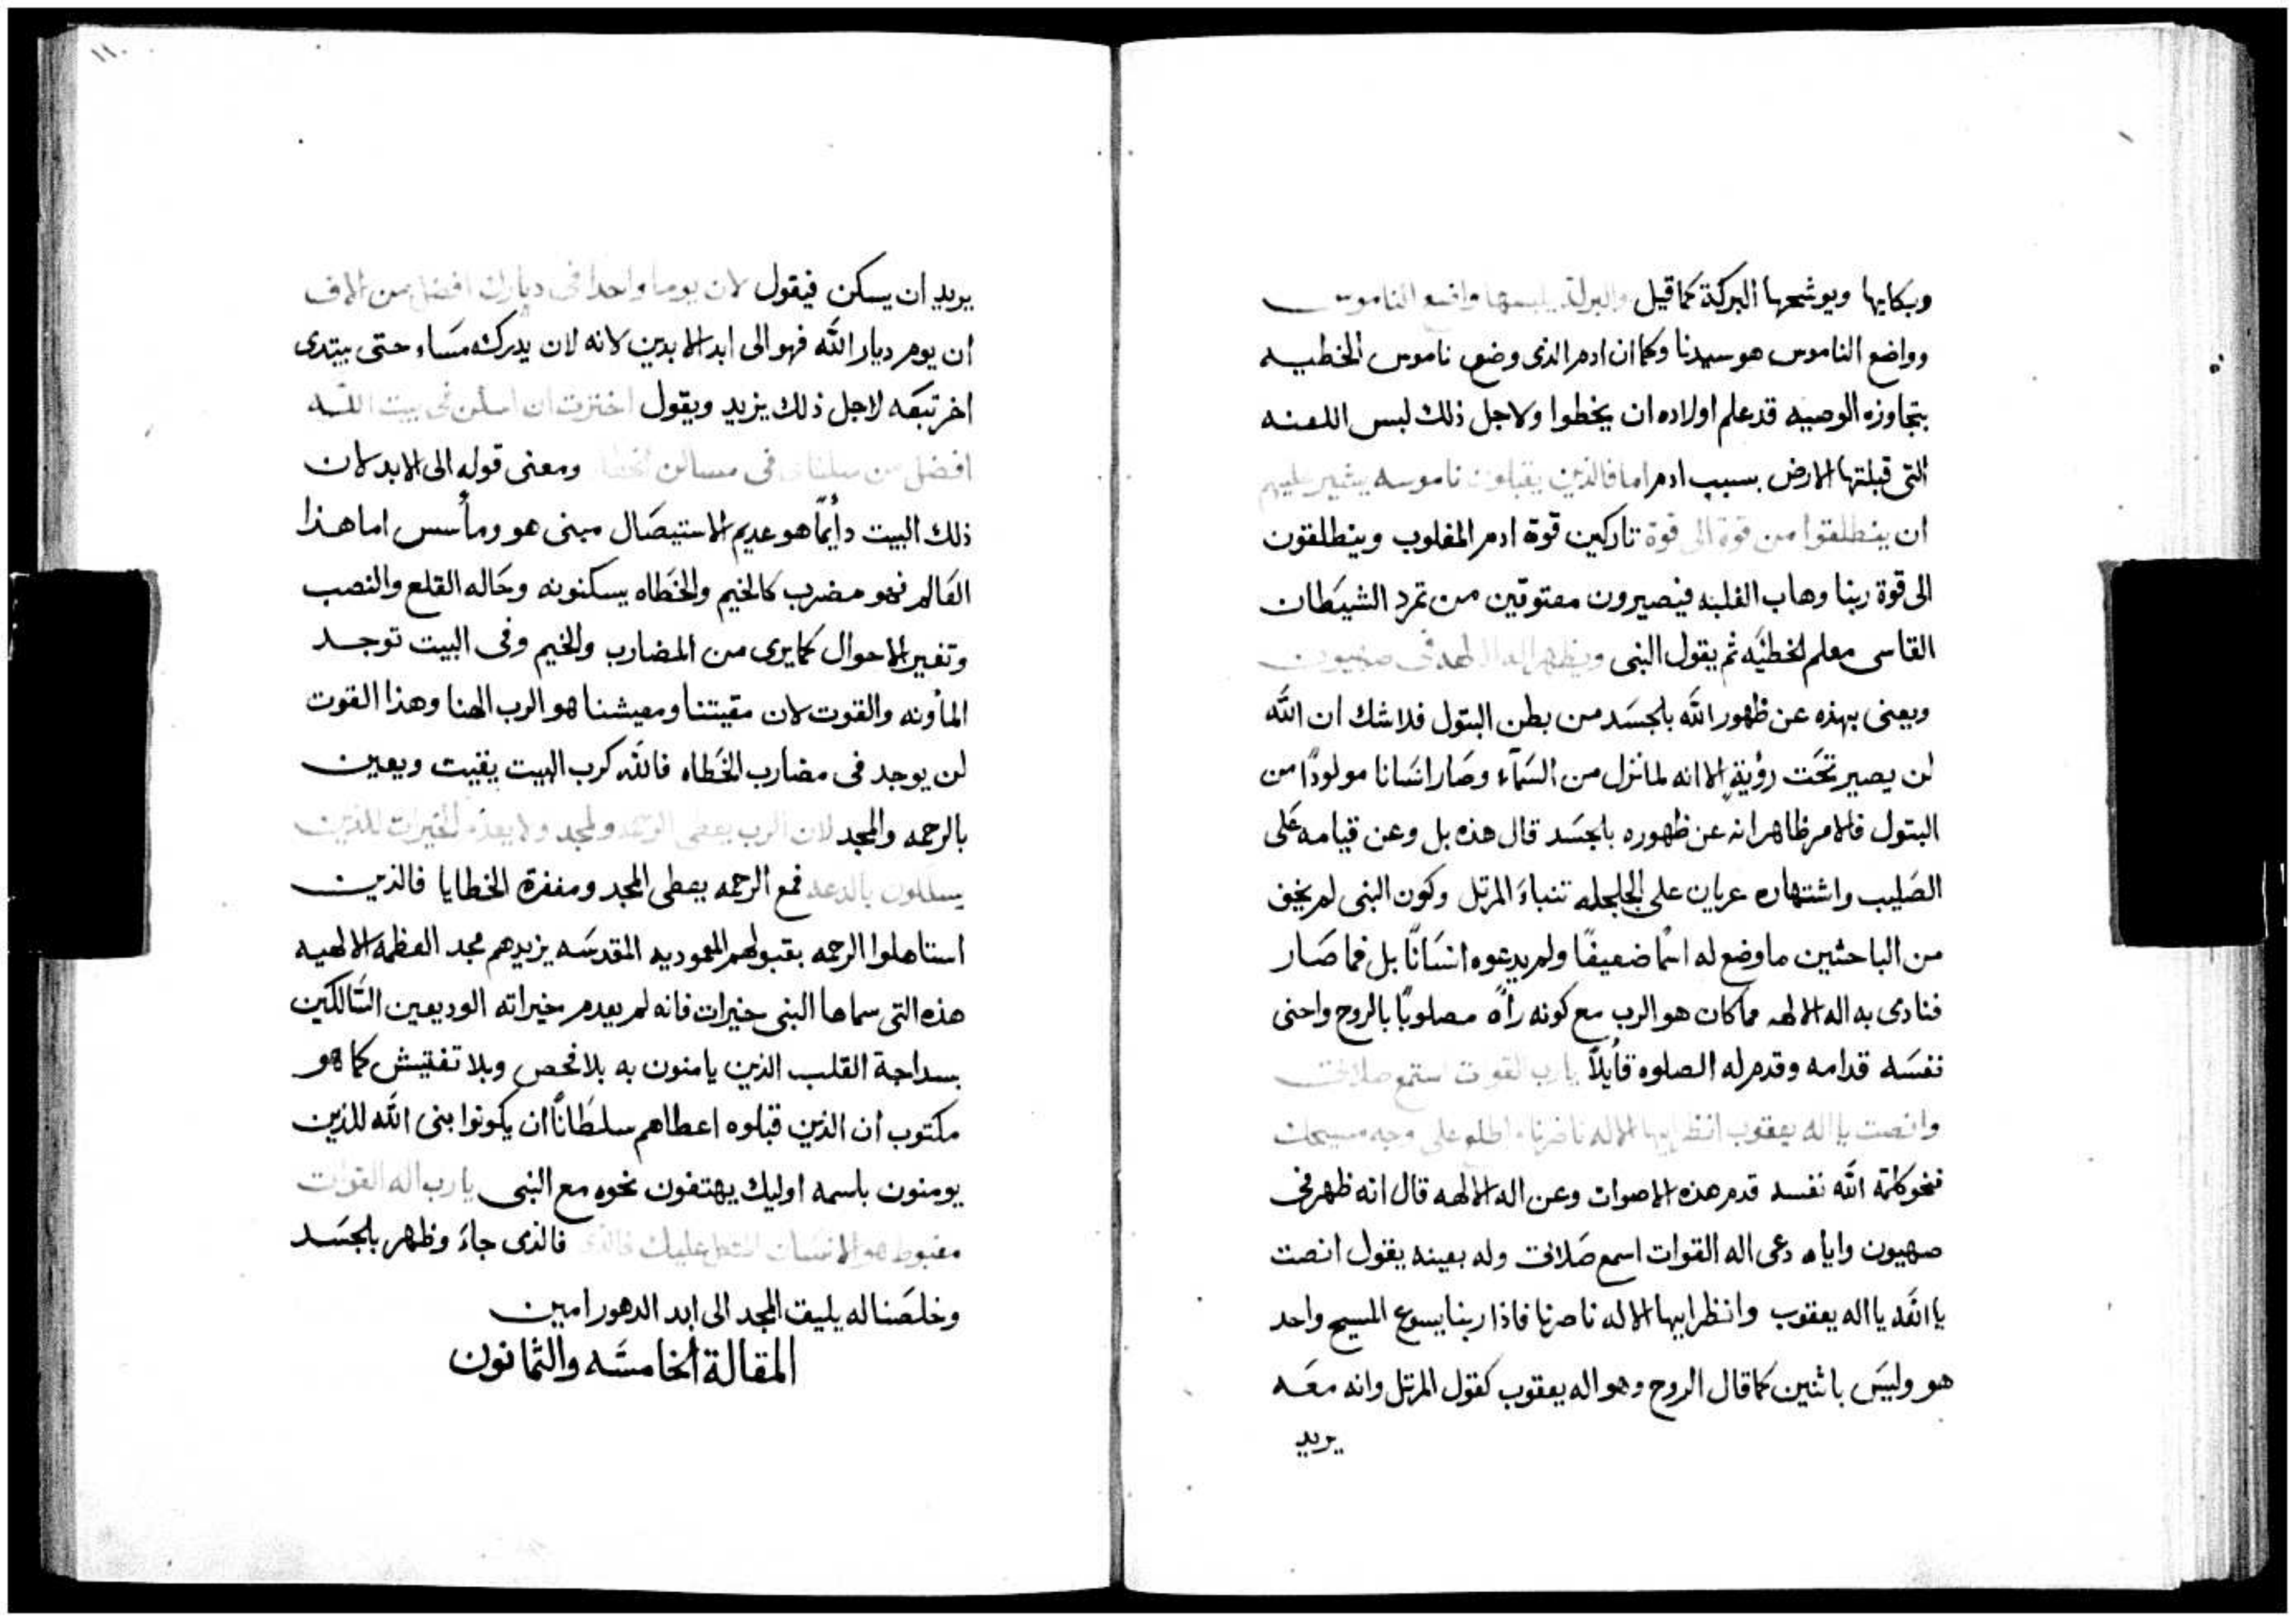 وبكايها ويوشحها البركة كما قيل والبركة يلبسها واضع الناموس
وواضع الناموس هو سيدنا وكما ان ادم الذى وضع ناموس الخطيه
بتجاوزه الوصيه قد علم اولاده ان يخطوا ولاجل ذلك لبس اللعنه
التى قبلتها الارض بسبب ادم اما فالذين يقبلون ناموسه يشير عليهم
ان ينطلقوا من قوة الى قوة تاركين قوة ادم المغلوب وينطلقون
الى قوة ربنا وهاب الغلبه فيصيرون معتوقين من تمرد الشيطان
القاسى معلم الخطيه ثم يقول النبى ويظهر اله الالهه فى صهيون
ويعنى بهذه عن ظهور الله بالجسد من بطن البتول فلا شك ان الله
لن يصير تحت رؤية الا انه لما نزل من السمآء وصار انسانا مولودًا من
البتول فالامر ظاهر انه عن ظهوره بالجسد قال هذه بل وعن قيامه على
الصليب واشتهاره عريان على الجلجله تنباء المرتل وكون النبى لم يخف
من الباحثين ما وضع له اسمًا ضعيفًا ولم يدعوه انسانًا بل فما صار
فنادى به اله الالهه مما كان هو الرب مع كونه رأه مصلوبًا بالروح واحنى
نفسه قدامه وقدم له الصلوه قأيلاً يارب القوت استمع صلاتى
وانصت يا اله يعقوب انظر ايها الاله ناصرنا واطلع على وجه مسيحك
فنحو كلمة الله نفسه قدم هذه الاصوات وعن اله الالهه قال انه ظهر فى
صهيون واياه دعى اله القوات اسمع صلاتى وله بعينه يقول انصت
يا الله يا اله يعقوب وانظر ايها الاله ناصرنا فاذا ربنا يسوع المسيح واحد
هو وليس باثنين كما قال الروح وهو اله يعقوب كقول المرتل وانه معه
يريد
١١٠
يريد ان يسكن فيقول لان يوما واحدا فى ديارك افضل من الاف
ان يوم ديار الله فهو الى ابد الابدين لانه لان يدركه مساء حتى يبتدى
اخر تبعه لاجل ذلك يزيد ويقول اخترت ان اسكن فى بيت الله
افضل من سكناى فى مساكن الخطاه ومعنى قوله الى الابد لان
ذلك البيت دأيمًا هو عديم الاستيصال مبنى هو ومأسس اما هذا
العالم فهو مضرب كالخيم والخطاه يسكنونه وحاله القلع والنصب
وتغير الاحوال كما يرى من المضارب والخيم وفى البيت توجد
المأونه والقوت لان مقيتنا ومعيشنا هو الرب الهنا وهذا القوت
لن يوجد فى مضارب الخطاه فالله كرب البيت يقيت ويعين
بالرحمه والمجد لان الرب يعطى الرحمه والمجد ولا يعدم الخيرات للذين
يسلكون بالدعه فمع الرحمه يعطى المجد ومغفرة الخطايا فالذين
استاهلوا الرحمه بقبولهم المعموديه المقدسه يزيدهم مجد العظمه الالهيه
هذه التى سماها النبى خيرات فانه لم يعدم خيراته الوديعين السالكين
بسداجة القلب الذين يامنون به بلا فحص وبلا تفتيش كما هو
مكتوب ان الذين قبلوه اعطاهم سلطانًا ان يكونوا بنى الله للذين
يومنون باسمه اوليك يهتفون نحوه مع النبى يا رب اله القوات
مغبوط هو الانسان المتكل عليك فالذى جاء وظهر بالجسد
وخلصنا له يليق المجد الى ابد الدهور امين
المقالة الخامسه والثمانون